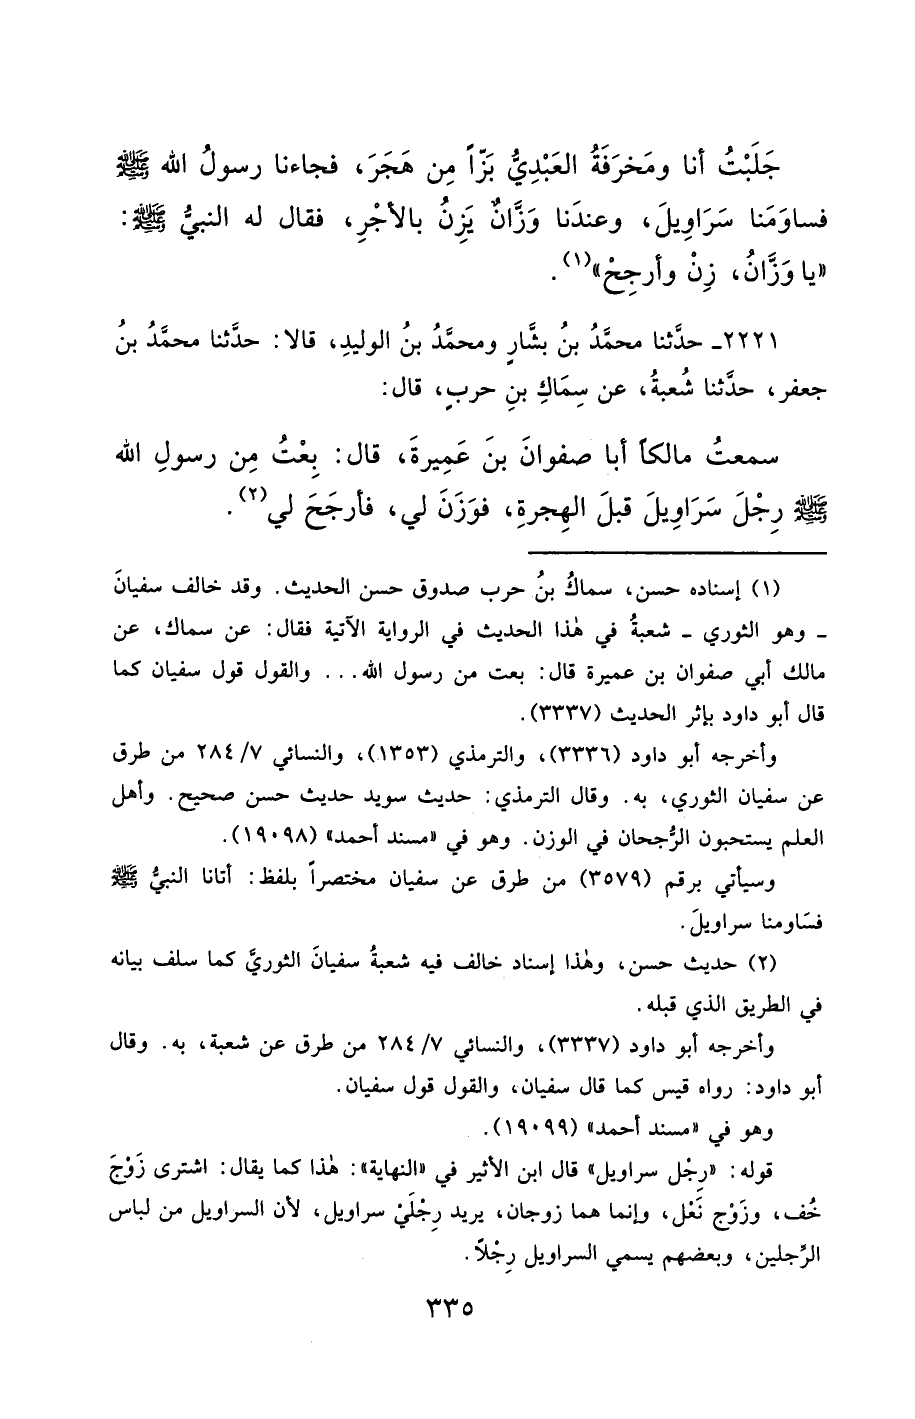 جَلَبْتُ أنا ومَخرَفَةُ العَبْدِيُّ بَزّاً مِن هَجَرَ، فجاءنا رسولُ الله ﷺ
فساوَمَنا سَرَاوِيلَ، وعندَنا وَزَّانٌ يَزِنُ بالأجْرِ، فقال له النبيُّ ﷺ:
«يا وَزَّانُ، زِنْ وأرجِحْ»(١).
٢٢٢١ـ حدَّثنا محمَّدُ بنُ بشَّارٍ ومحمَّدُ بنُ الوليدِ، قالا: حدَّثنا محمَّدُ بنُ
جعفر، حدَّثنا شُعبةُ، عن سِمَاكِ بنِ حربٍ، قال:
سمعتُ مالكاً أبا صفوانَ بنَ عَمِيرةَ، قال: بِعْتُ مِن رسولِ الله
ﷺ رِجْلَ سَرَاوِيلَ قبلَ الهِجرةِ، فوَزَنَ لي، فأرجَحَ لي(٢).
(١) إسناده حسن، سماكُ بنُ حرب صدوق حسن الحديث. وقد خالف سفيانَ
ـ وهو الثوري ـ شعبةُ في هٰذا الحديث في الرواية الآتية فقال: عن سماك، عن
مالك أبي صفوان بن عميرة قال: بعت من رسول الله... والقول قول سفيان كما
قال أبو داود بإثر الحديث (٣٣٣٧).
وأخرجه أبو داود (٣٣٣٦)، والترمذي (١٣٥٣)، والنسائي ٧/ ٢٨٤ من طرق
عن سفيان الثوري، به. وقال الترمذي: حديث سويد حديث حسن صحيح. وأهل
العلم يستحبون الرُّجحان في الوزن. وهو في «مسند أحمد» (١٩٠٩٨).
وسيأتي برقم (٣٥٧٩) من طرق عن سفيان مختصراً بلفظ: أتانا النبيُّ ﷺ
فسَاومنا سراويلَ.
(٢) حديث حسن، وهٰذا إسناد خالف فيه شعبةُ سفيانَ الثوريَّ كما سلف بيانه
في الطريق الذي قبله.
وأخرجه أبو داود (٣٣٣٧)، والنسائي ٧/ ٢٨٤ من طرق عن شعبة، به. وقال
أبو داود: رواه قيس كما قال سفيان، والقول قول سفيان.
وهو في «مسند أحمد» (١٩٠٩٩).
قوله: «رِجْل سراويل» قال ابن الأثير في «النهاية»: هٰذا كما يقال: اشترى زَوْجَ
خُف، وزَوْج نَعْل، وإنما هما زوجان، يريد رِجْلَيْ سراويل، لأن السراويل من لباس
الرِّجلين، وبعضهم يسمي السراويل رِجْلاً.
٣٣٥